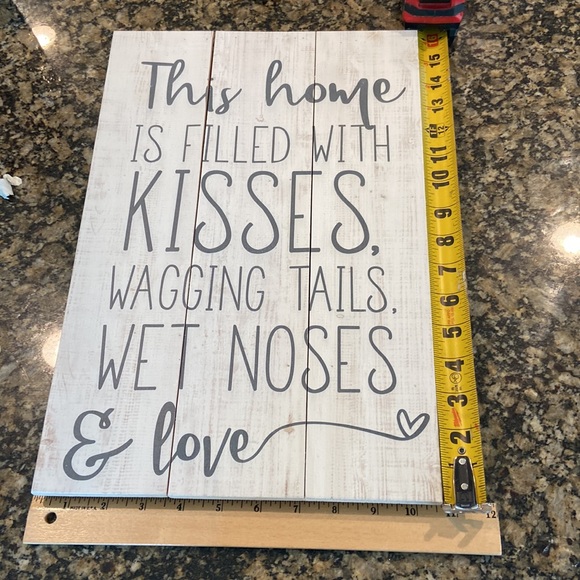 This home
IS FILLED WITH
KISSES,
WAGGING TAILS,
WET NOSES
& love
15
14
13
12
11
10
9
8
7
6
5
4
3
2
2 3 4 5 6 7 8 9 10 12